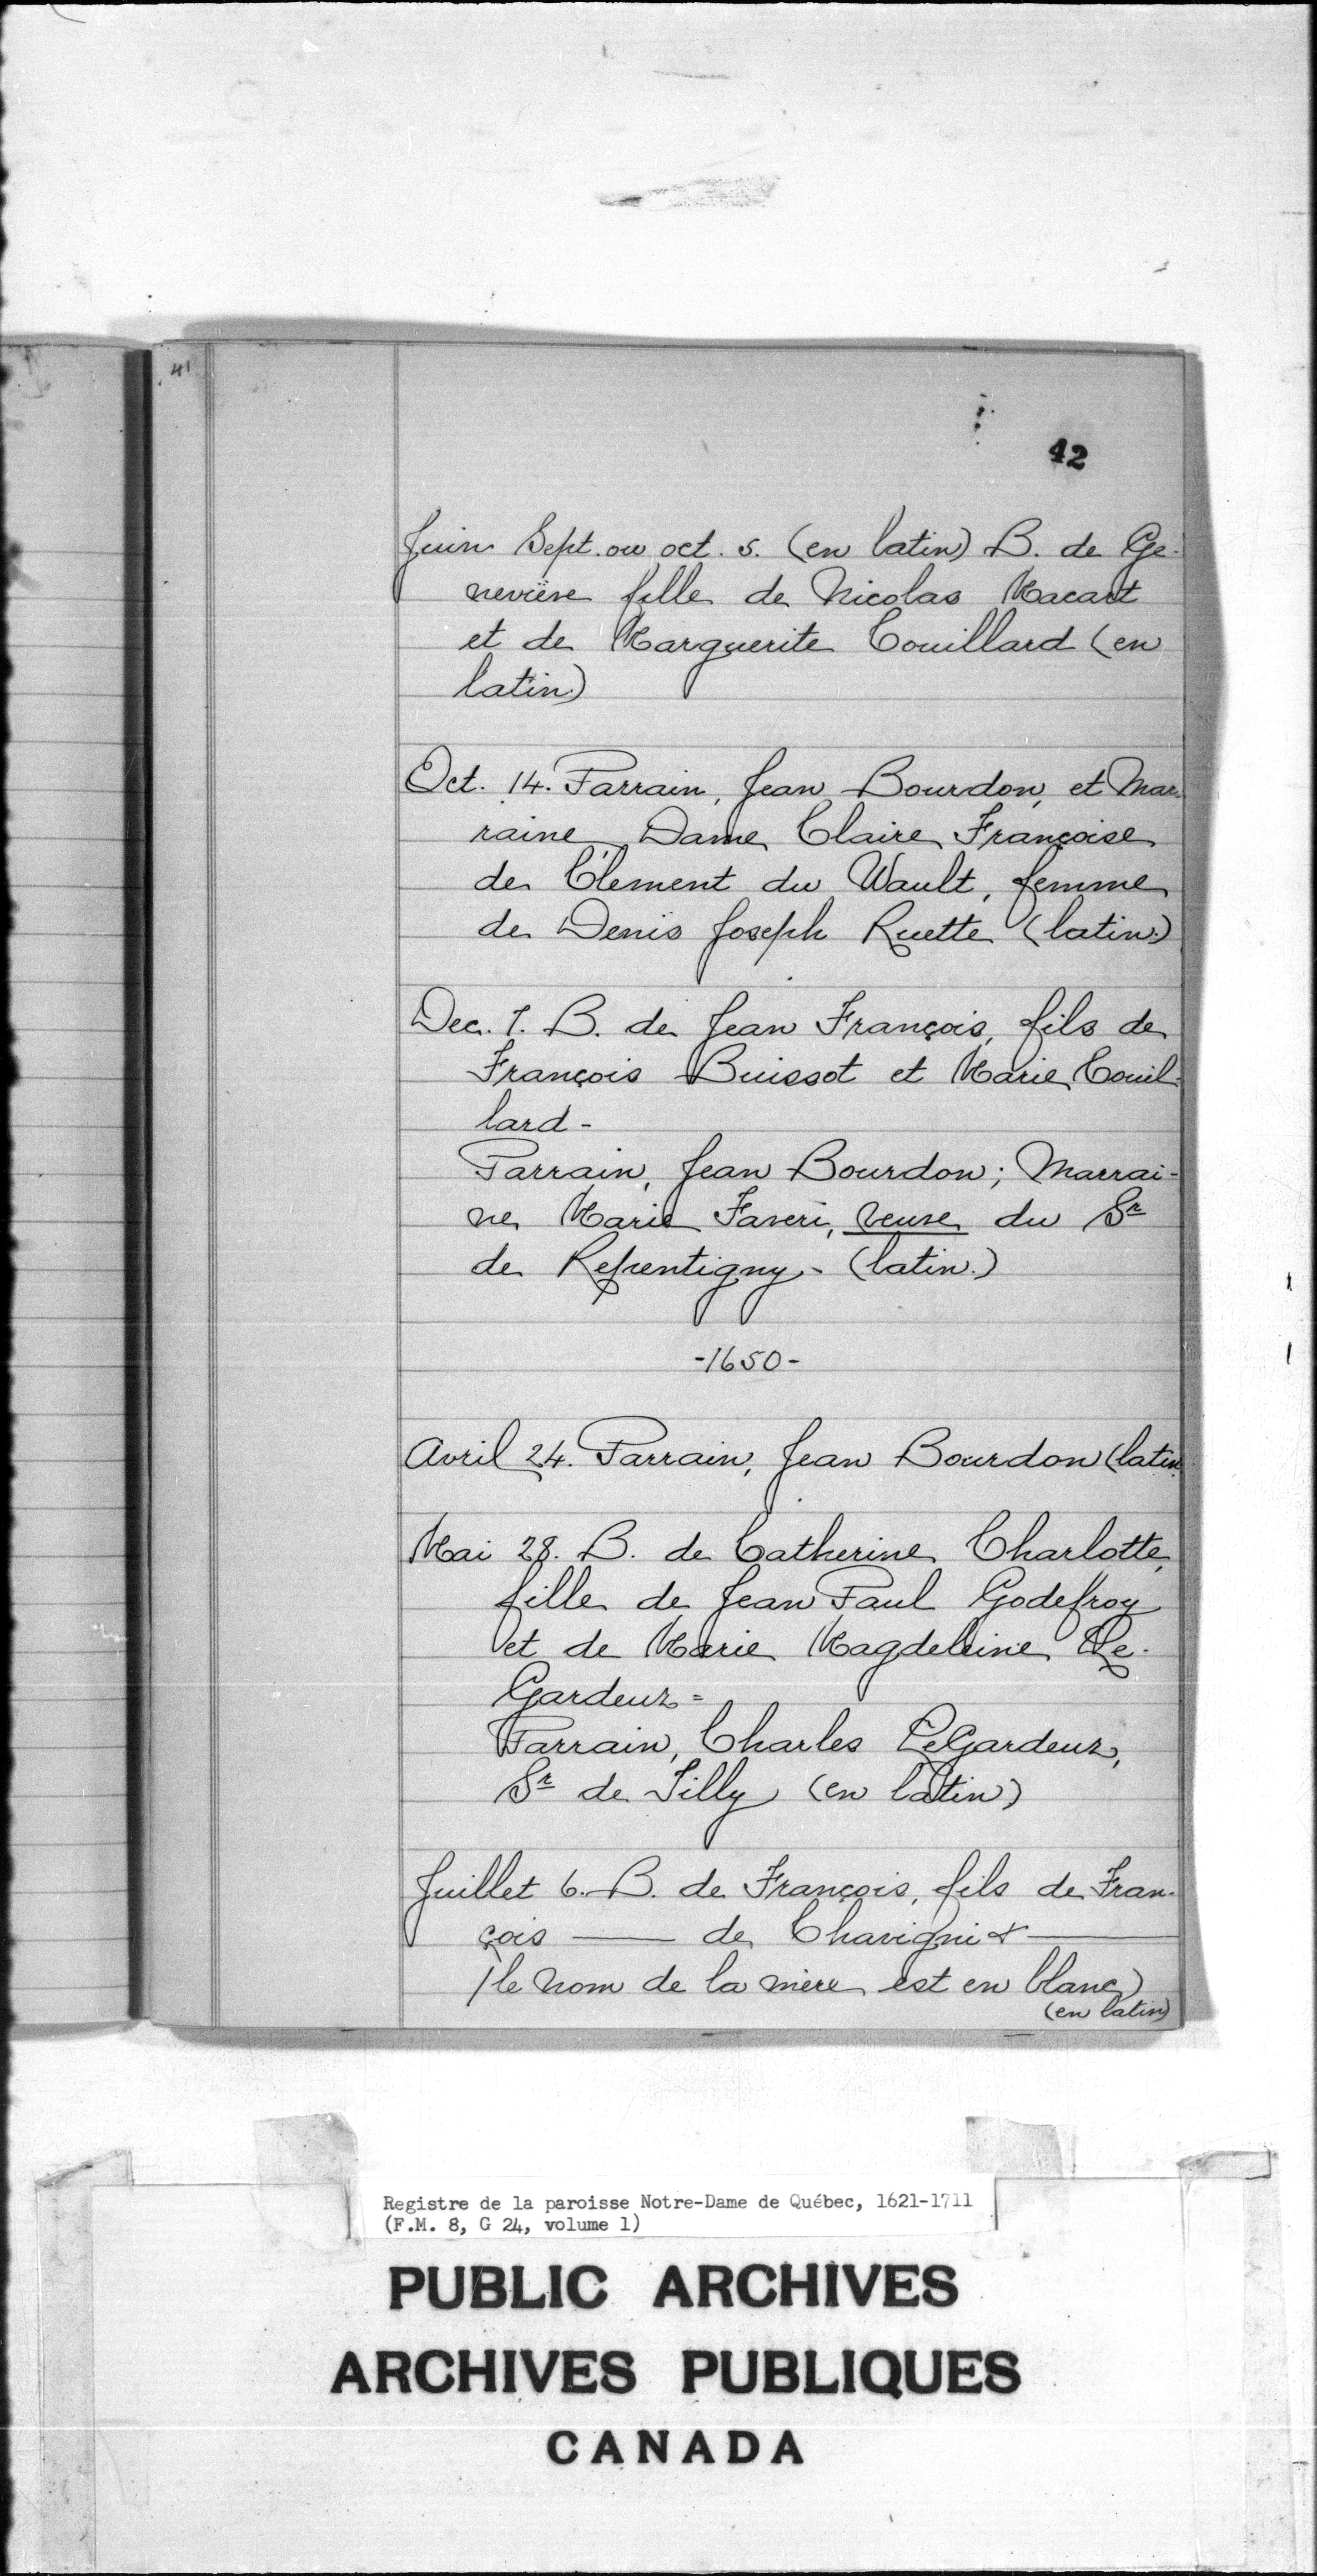 41
42
Juin Sept. ou oct. 5. (en latin) B. de Ge-
neviève fille de Nicolas Macart
et de Marguerite Couillard (en
latin)
Oct. 14. Parrain, Jean Bourdon, et Mar-
raine Dame Claire Françoise
de Clément du Wault, femme
de Denis Joseph Ruette (latin)
Dec. 7. B. de Jean François, fils de
François Buissot et Marie Couil-
lard -
Parrain, Jean Bourdon; Marrai-
ne Marie Faveri, veuve du Sr
de Repentigny - (latin.)
-1650-
Avril 24. Parrain, Jean Bourdon (latin
Mai 28. B. de Catherine Charlotte,
fille de Jean Paul Godefroy
et de Marie Magdeleine Le-
Gardeur =
Parrain, Charles LeGardeur,
Sr de Tilly (en latin)
Juillet 6. B. de François, fils de Fran-
çois —— de Chavigni & ——
(le nom de la mère est en blanc)
(en latin)
Registre de la paroisse Notre-Dame de Québec, 1621-1711
(F.M. 8, G 24, volume 1)
PUBLIC ARCHIVES
ARCHIVES PUBLIQUES
CANADA